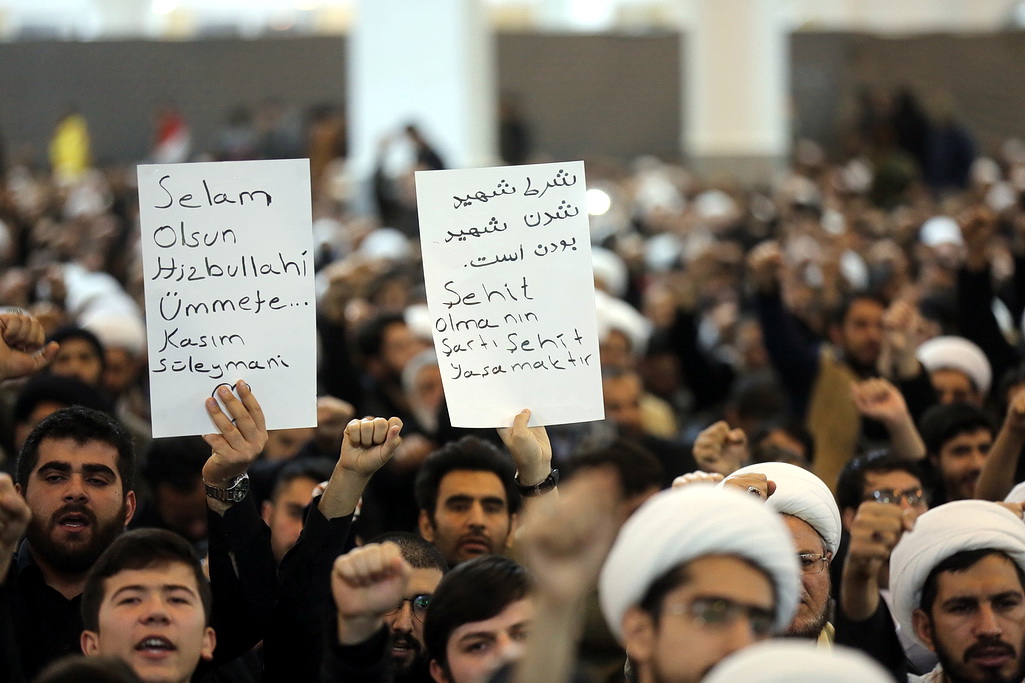 Selam
Olsun
Hizbullahi
Ümmete...
Kasım
Süleymani
شرط شهید
شدن شهید
بودن است.
Şehit
olmanın
Şartı Şehit
Yaşamaktır